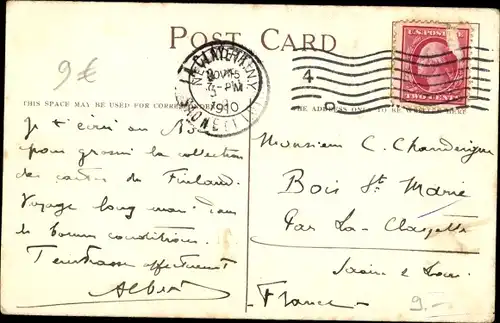 9€
POST CARD
NOV 15
3-PM
1910
4
U.S. POST
TWO CENTS
THIS SPACE MAY BE USED FOR
THE ADDRESS ONLY TO BE HERE
Je t'écris
pour grossir la collection
des cartes de Finland.
Voyage long mais dans
de bonnes conditions.
T'embrasse affectueusement
Albert
Monsieur C.
Bois Ste Marie
Par La Clayette
Saône & Loire
France
9.-